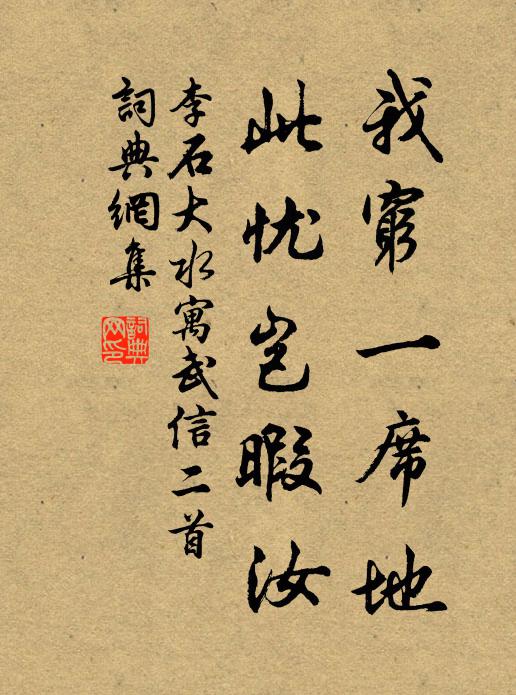 我窮一席地
此忧岂暇汝
李石大水寓武信二首
詞典網集
詞典網印